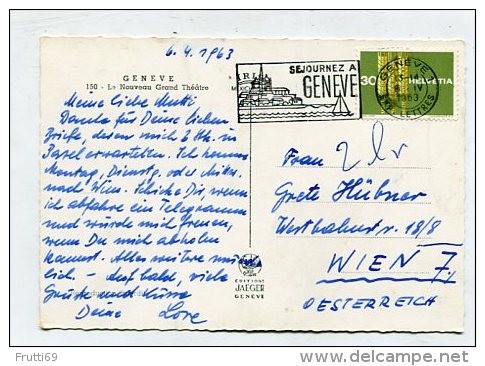 6. 4. 1963
GENEVE
150 - Le Nouveau Grand Théâtre
SEJOURNEZ A
GENEVE
GENEVE
1963
EXP. LETTRES
30
HELVETIA
Meine liebe Mutti!
Danke für Deine lieben
Briefe, deren mich 2 Stk. in
Basel erwarteten. Ich komme
Montag, Dienstg. oder Mittw.
nach Wien. Schicke Dir, wenn
ich abfahre ein Telegramm
und würde mich freuen,
wenn Du mich abholen
kannst. Alles weitere münd-
lich - Auf bald, viele
Grüße und Küsse
Deine Lore
EDITIONS
JAEGER
GENEVE
Frau
Grete Hübner
Westbahnstr. 18/8
WIEN 7.
OESTERREICH
Frutti69
http://www.delcampe.net